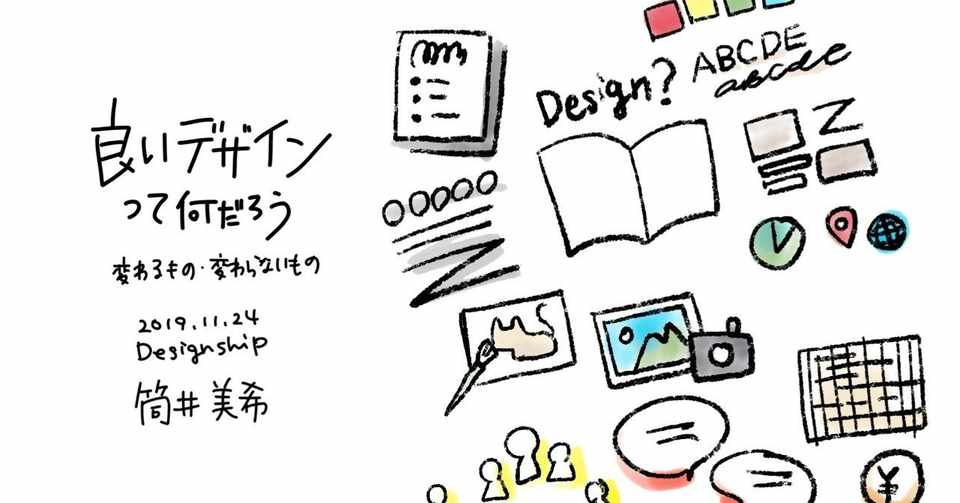 良いデザイン
って何だろう
変わるもの・変わらないもの
2019.11.24
Designship
筒井美希
Design?
ABCDE
abcde
¥